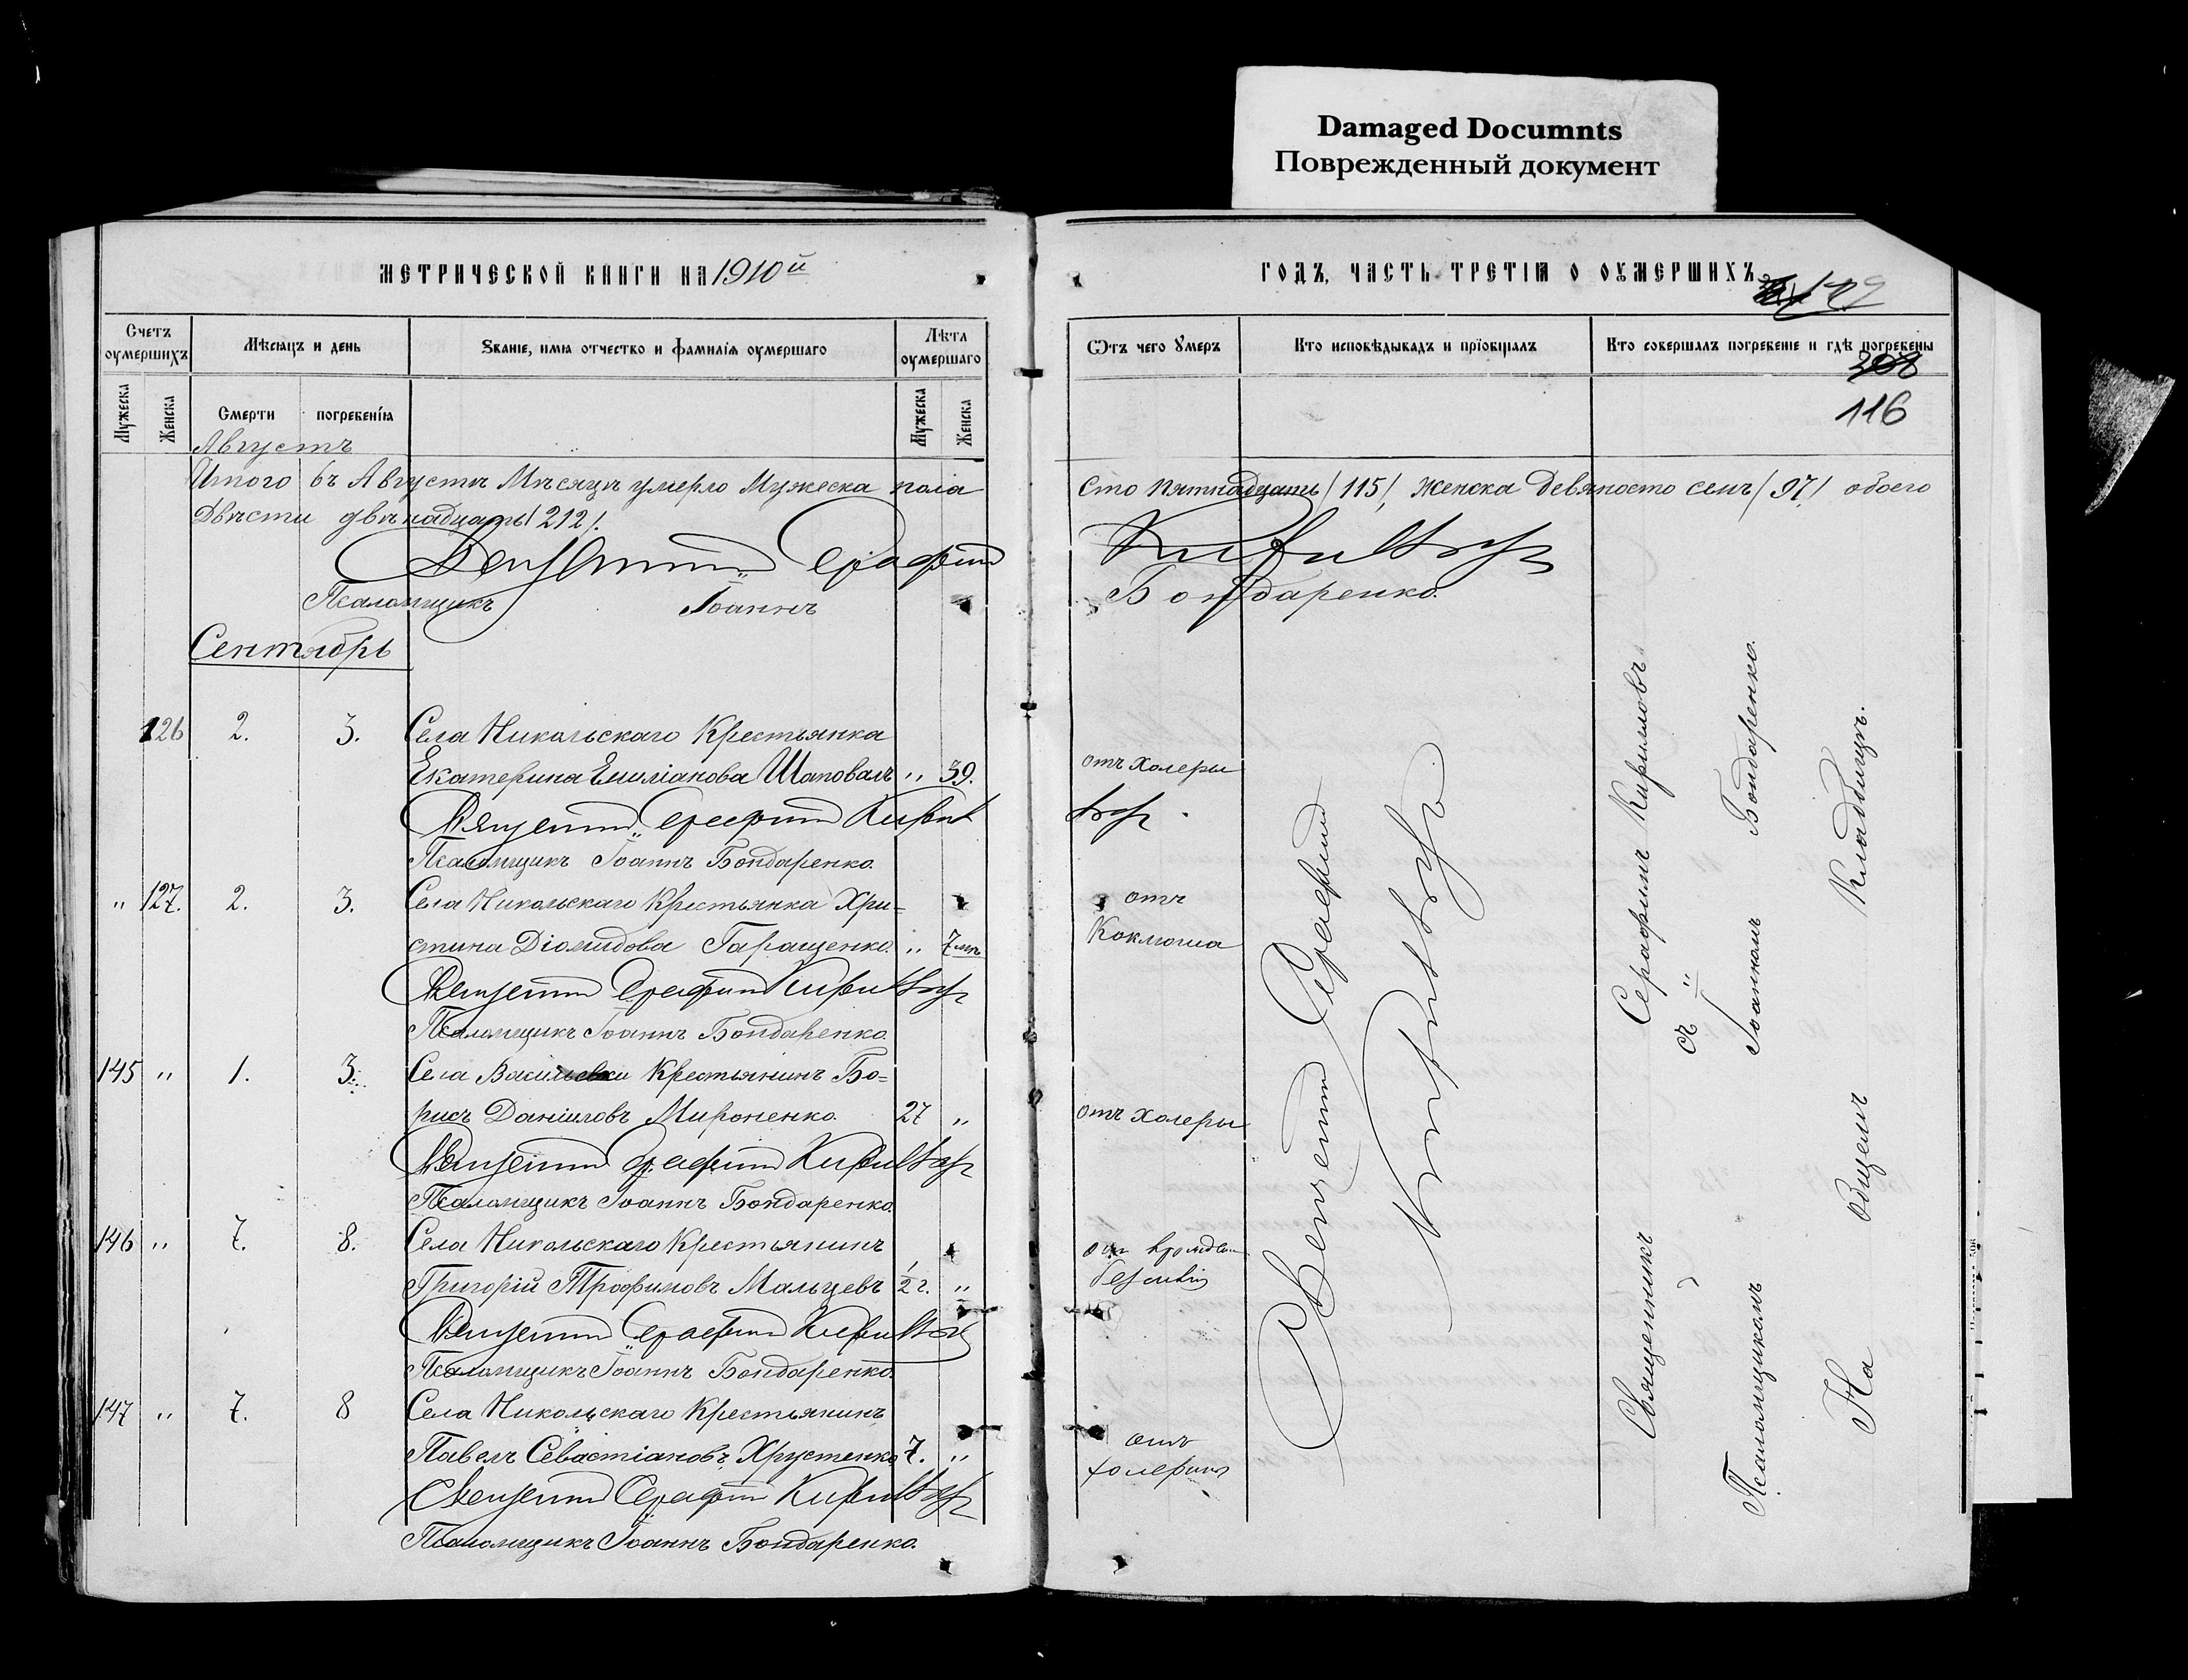 Damaged Documnts
Поврежденный документ
МЕТРИЧЕСКОЙ КНИГИ НА 1910й
ГОДЪ, ЧАСТЬ ТРЕТІЯ О ОУМЕРШИХЪ
149
Счетъ оумершихъ
Мѣсяцъ и день
Званіе, имя отчество и фамилія оумершаго
Лѣта оумершаго
Мужеска
Женска
Смерти
погребенія
Мужеска
Женска
Ѿтъ чего умеръ
Кто исповѣдывалъ и пріобщалъ
Кто совершалъ погребеніе и гдѣ погребены
116
Августъ
Итого въ Августѣ Мѣсяцѣ умерло Мужеска пола сто пятнадцать /115/, женска девяносто семь /97/ обоего
Двѣсти двѣнадцать /212/.
Священникъ Серафимъ Кириловъ
Псаломщикъ Іоаннъ Бондаренко.
Сентябрь
126 2. 3. Села Никольскаго Крестьянка
Екатерина Емиліанова Шаповалъ „ 39. отъ холеры
Священникъ Серафимъ Кириловъ
Псаломщикъ Іоаннъ Бондаренко.
„ 127. 2. 3. Села Никольскаго Крестьянка Хри= отъ
стина Діомидова Гаращенко. „ 7 мѣ Коклюша
Священникъ Серафимъ Кириловъ
Псаломщикъ Іоаннъ Бондаренко.
145 „ 1. 3. Села Васильевки Крестьянинъ Бо=
рисъ Даніиловъ Мироненко. 27 „ отъ холеры
Священникъ Серафимъ Кириловъ
Псаломщикъ Іоаннъ Бондаренко.
146 „ 7. 8. Села Никольскаго Крестьянинъ отъ
Григорій Трофимовъ Мальцевъ 1/2 г. „
Священникъ Серафимъ Кириловъ
Псаломщикъ Іоаннъ Бондаренко.
147 „ 7. 8 Села Никольскаго Крестьянинъ
Павелъ Севастіановъ Хрустенко 7. „ отъ
холерины
Священникъ Серафимъ Кириловъ
Псаломщикъ Іоаннъ Бондаренко.
Священникъ Серафимъ
Кириловъ
Священникъ Серафимъ Кириловъ
съ
Псаломщикомъ Іоанномъ Бондаренко.
На общемъ Кладбищѣ.